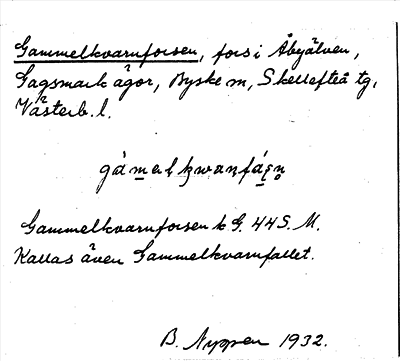 Gammelkvarnforsen, fors i Åbyälven,
Gagsmark ägor, Byske sn, Skellefteå tg,
Västerb. l.
gámelkwanfásn
Gammelkvarnforsen k G. 44 S. M.
Kallas även Gammelkvarnfallet.
B. Nyppen 1932.